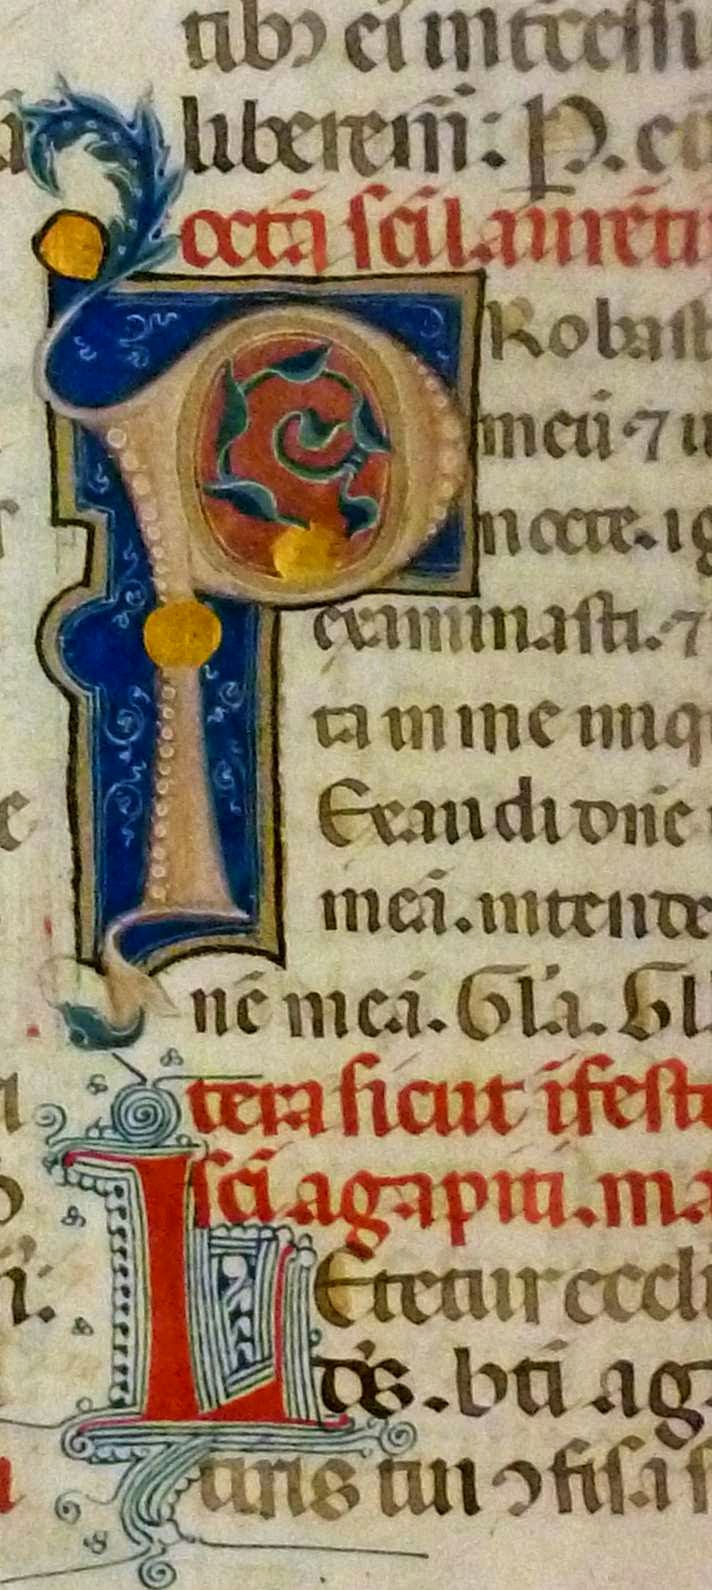 tibꝫ ei intcessi
liberem̄: P. eū
octā sc̄i laurētii
PRobasti
meū ⁊ u
nocte. ig
examinasti. ⁊
ta in me iniq
Exaudi dn̄e
meā. intende
nē meā. Gl'a. Gl
tera sicut ī festo
sc̄i agapiti. ma
LEtetur eccli
ds̄. bt̄i ag
tiris tui ꝯfisa